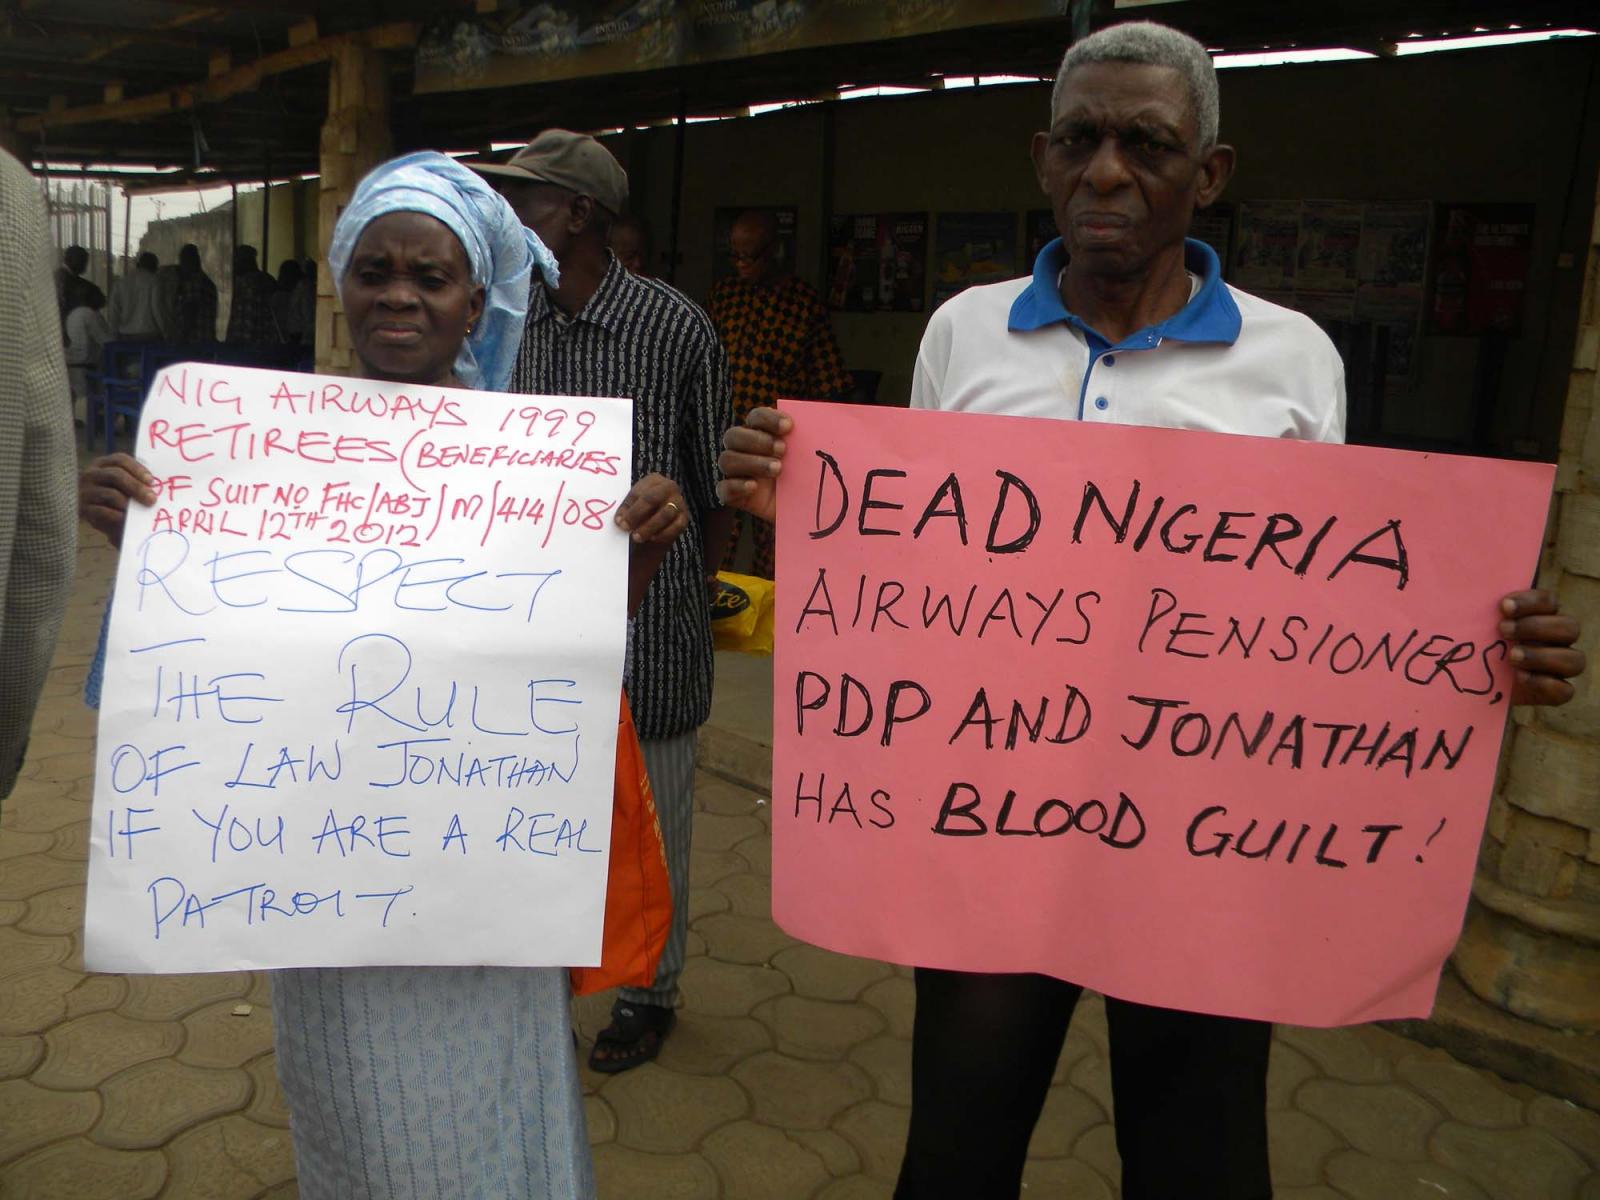 NIG AIRWAYS 1999
RETIREES (BENEFICIARIES
OF SUIT NO FHC/ABJ/M/414/08
APRIL 12TH 2012
RESPECT
THE RULE
OF LAW JONATHAN
IF YOU ARE A REAL
PATROIT.
DEAD NIGERIA
AIRWAYS PENSIONERS,
PDP AND JONATHAN
HAS BLOOD GUILT!